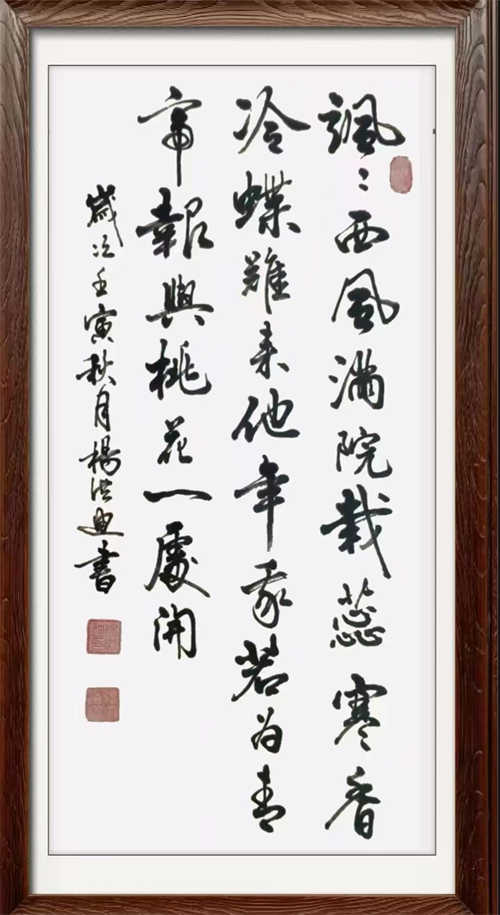 颯〻西風滿院栽蕊寒香
冷蝶難来他年我若为青
帝報與桃花一處開
歲次壬寅秋月楊洪迎書